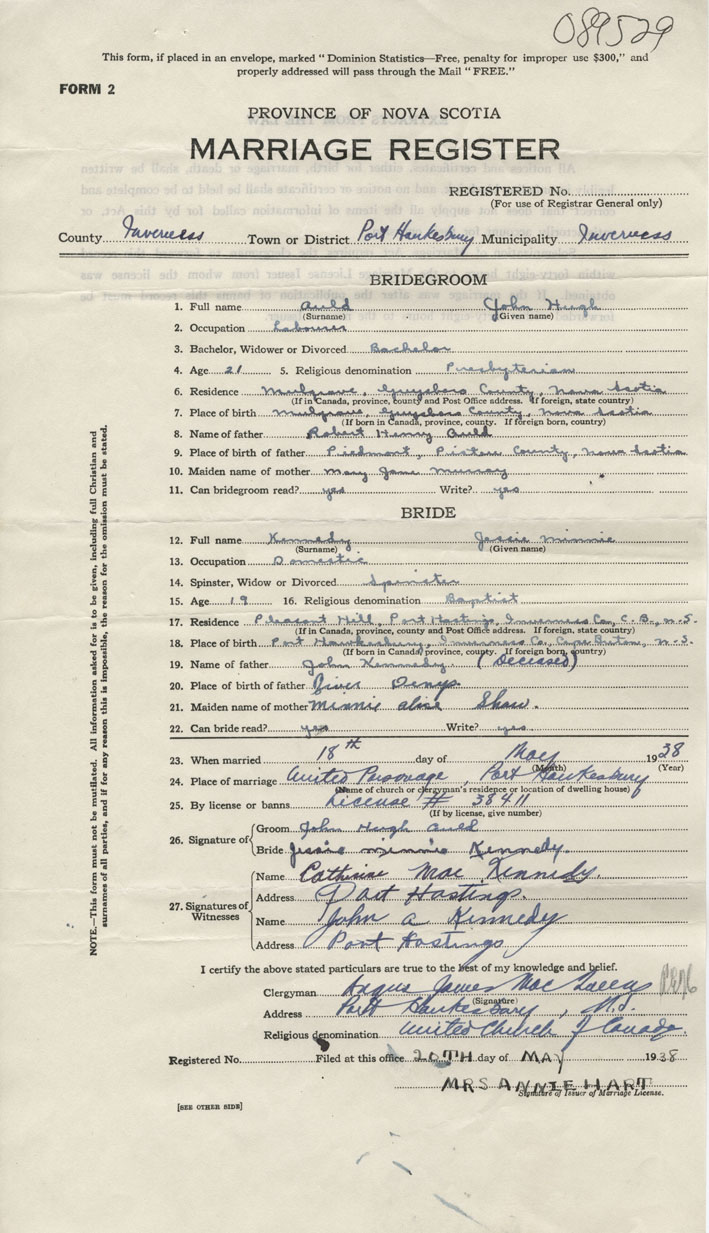 089529
This form, if placed in an envelope, marked "Dominion Statistics—Free, penalty for improper use $300," and
properly addressed will pass through the Mail "FREE."
FORM 2
PROVINCE OF NOVA SCOTIA
MARRIAGE REGISTER
REGISTERED No.
(For use of Registrar General only)
County Inverness Town or District Port Hawkesbury Municipality Inverness
BRIDEGROOM
1. Full name Auld John Hugh
(Surname) (Given name)
2. Occupation Labourer
3. Bachelor, Widower or Divorced Bachelor
4. Age 21 5. Religious denomination Presbyterian
6. Residence Mulgrave, Guysboro County, Nova Scotia
(If in Canada, province, county and Post Office address. If foreign, state country)
7. Place of birth Mulgrave, Guysboro County, Nova Scotia
(If born in Canada, province, county. If foreign born, country)
8. Name of father Robert Henry Auld
9. Place of birth of father Piedmont, Pictou County, Nova Scotia
10. Maiden name of mother Mary Jane Murray
11. Can bridegroom read? yes Write? yes
BRIDE
12. Full name Kennedy Jessie Minnie
(Surname) (Given name)
13. Occupation Domestic
14. Spinster, Widow or Divorced Spinster
15. Age 19 16. Religious denomination Baptist
17. Residence Pleasant Hill, Port Hastings, Inverness Co., C.B., N.S.
(If in Canada, province, county and Post Office address. If foreign, state country)
18. Place of birth Port Hawkesbury, Inverness Co, Cape Breton, N.S.
(If born in Canada, province, county. If foreign born, country)
19. Name of father John Kennedy (Deceased)
20. Place of birth of father River Denys
21. Maiden name of mother Minnie Alise Shaw.
22. Can bride read? yes Write? yes
23. When married 18th day of May 1938
(Month) (Year)
24. Place of marriage United Parsonage, Port Hawkesbury
(Name of church or clergyman's residence or location of dwelling house)
25. By license or banns License # 38411
(If by license, give number)
26. Signature of Groom John Hugh Auld
Bride Jessie Minnie Kennedy.
27. Signatures of Witnesses Name Catherine Mae Kennedy.
Address Port Hastings.
Name John A Kennedy
Address Port Hastings
I certify the above stated particulars are true to the best of my knowledge and belief.
Clergyman Angus James MacQueen
(Signature)
Address Port Hawkesbury, N.S.
Religious denomination United Church of Canada.
Registered No. Filed at this office 20TH day of MAY 1938
MRS ANNIE HART
Signature of Issuer of Marriage License.
[SEE OTHER SIDE]
NOTE.—This form must not be mutilated. All information asked for is to be given, including full Christian and
surnames of all parties, and if for any reason this is impossible, the reason for the omission must be stated.